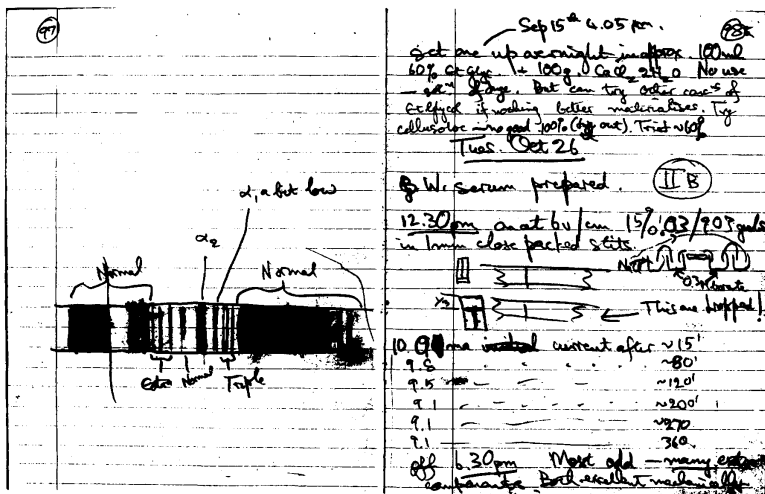 97
α, a bit low
α2
Normal
Normal
Extra Normal Triple
98
Sep 15th 4.05 pm.
Set one up overnight in approx. 100ml
60% + 100g. CaCl2 2H2O No use
But can try other conc^s of
if nothing better materialises. Try
cellusolve — no good - 100% (dry out). Tried ~60%
Tues. Oct 26
B.W. serum prepared. II B
12.30pm on at 6v/cm 15% .03/903 gels
in 1mm close packed slits.
.03M borate
This one dropped!
10.9 ma initial current after ~15'
9.8 ~80'
9.5 ~120'
9.1 ~200'
9.1 ~270
9.1 360.
off 6.30pm Most odd — many extra
components. Both excellent mechanically